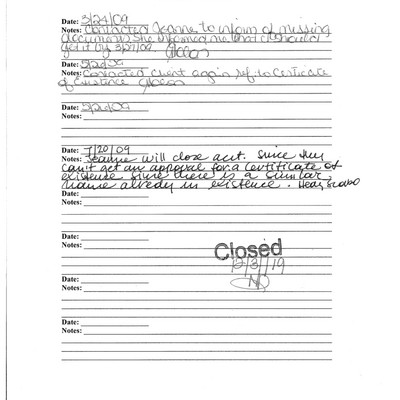 Date: 3/24/09
Notes: Contacted Jeanne to inform of missing
documents she informed me that
get it by 3/27/09.
Date: 5/20/09
Notes: Contacted client again ref. to Certificate
of Existence
Date: 5/20/09
Notes:
Date: 7/20/09
Notes: Jeanne will close acct. Since they
can't get an approval for a Certificate of
existence since there is a similar
name already in existence.
Date:
Notes:
Date:
Notes:
Closed
12/31/19
Date:
Notes:
Date:
Notes: